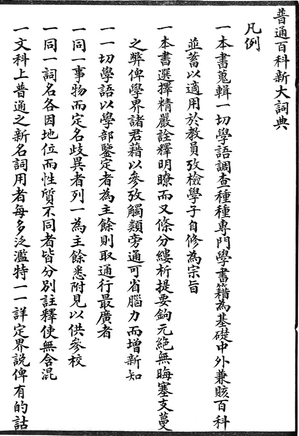 普通百科新大詞典
凡例
一本書蒐輯一切學語調查種種專門學書籍為基礎中外兼賅百科
並蓄以適用於教員攷檢學子自修為宗旨
一本書選擇精嚴詮釋明瞭而又條分縷析提要鉤元絕無晦塞支蔓
之弊俾學界諸君藉以參攷觸類旁通可省腦力而增新知
一一切學語以學部鑒定者為主餘則取通行最廣者
一同一事物而定名歧異者列一為主餘悉附見以供參校
一同一詞名各因地位而性質不同者皆分別註釋使無含混
一文科上普通之新名詞用者每多泛濫特一一詳定界說俾有的詁